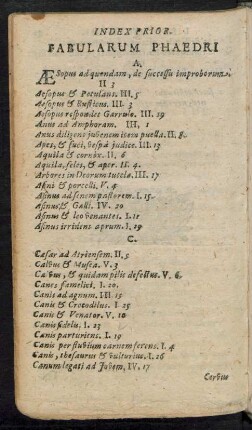 INDEX PRIOR.
FABULARUM PHAEDRI
A.
ÆSopus ad quendam, de successu improborum.
II 3
Aesopus & Petulans. III. 5
Aesopus & Rusticus. III. 3
Aesopus respondet Garrulo. III. 19
Anus ad Amphoram. III. 1
Anus diligens juvenem item puella. II. 2.
Apes, & fuci, vespâ judice. III. 13
Aquila & cornix. II. 6
Aquila, feles, & aper. II. 4.
Arbores in Deorum tutela. III. 17
Asini & porcelli. V. 4
Asinus ad senem pastorem. I. 15.
Asinus, & Galli. IV. 20
Asinus & leo venantes. I. 11
Asinus irridens aprum. I. 29
C.
Caesar ad Atriensem. II. 5
Calvus & Musca. V. 3
Calvus, & quidam pilis defectus. V. 6.
Canes famelici. I. 20.
Canis ad agnum. III. 15
Canis & Crocodilus. I. 25
Canis & Venator. V. 10
Canis fidelis. I. 23
Canis parturiens. I. 19
Canis per fluvium carnem ferens. I. 4
Canis, thesaurus & vulturius. I. 26
Canum legati ad Jovem. IV. 17
Cervus